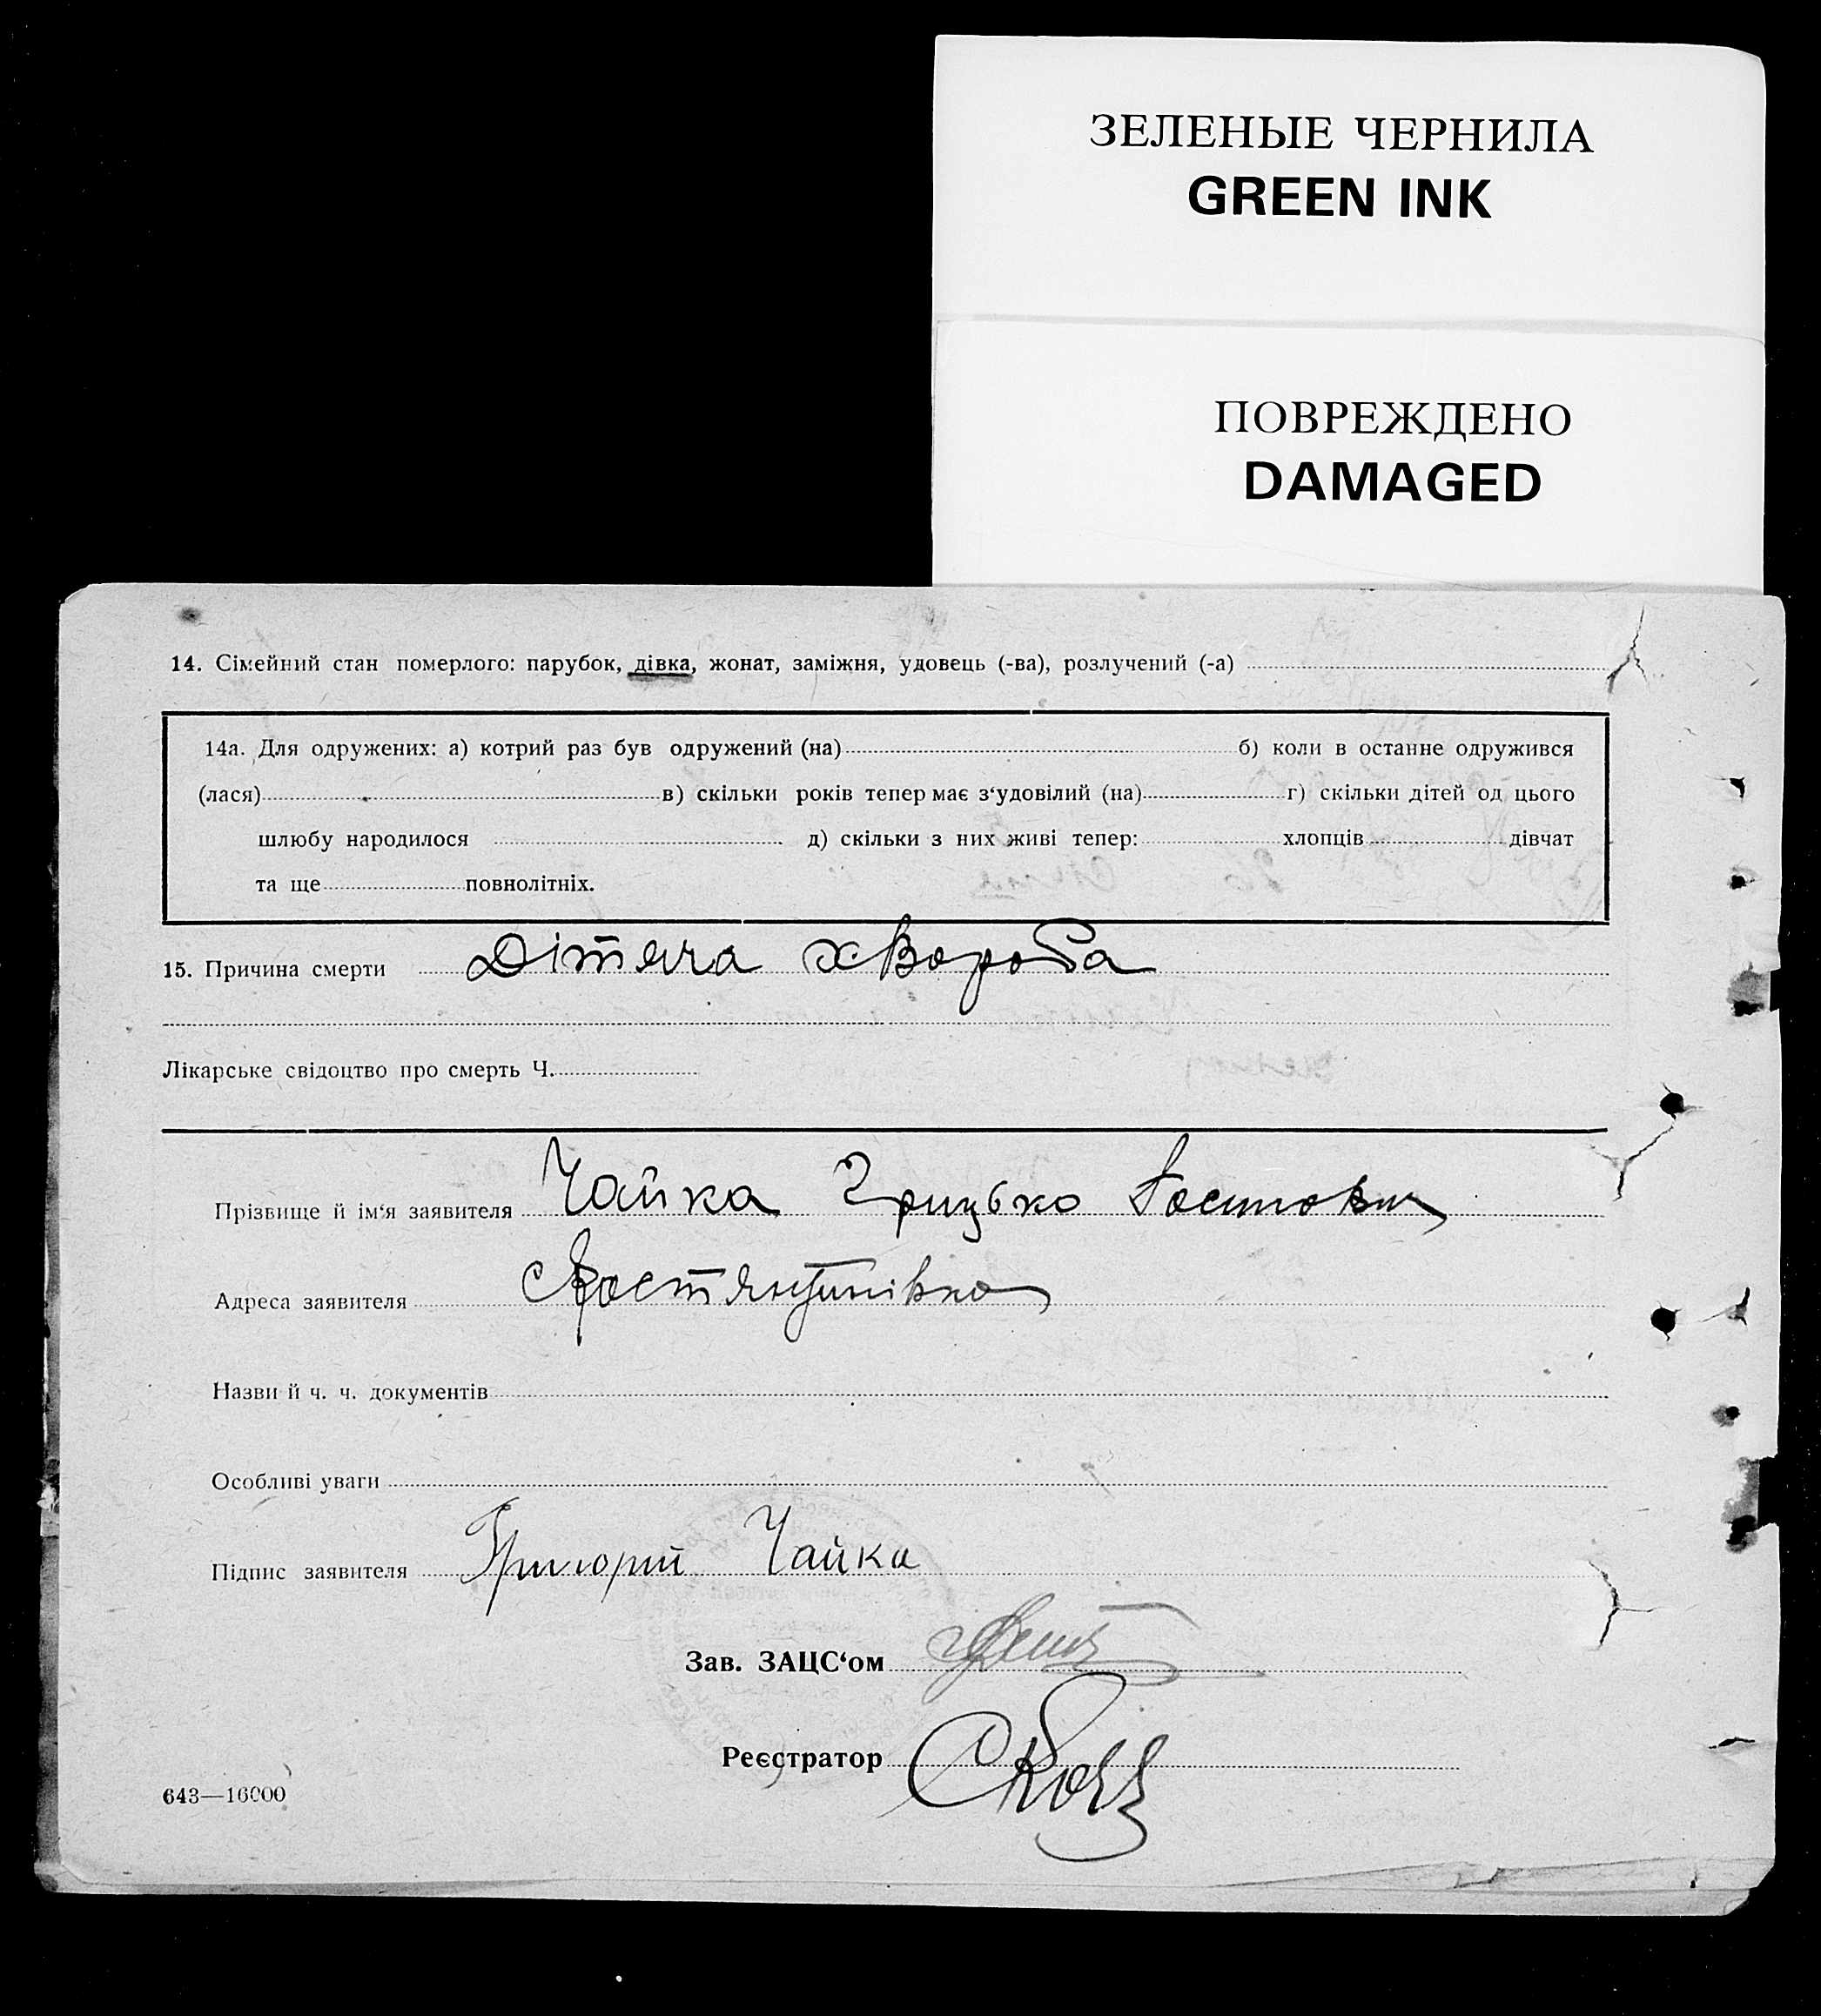 ЗЕЛЕНЫЕ ЧЕРНИЛА
GREEN INK
ПОВРЕЖДЕНО
DAMAGED
14. Сімейний стан померлого: парубок, дівка, жонат, заміжня, удовець (-ва), розлучений (-а)
14а. Для одружених: а) котрий раз був одружений (на) б) коли в останнє одружився
(лася) в) скільки років тепер має з‘удовілий (на) г) скільки дітей од цього
шлюбу народилося д) скільки з них живі тепер: хлопців дівчат
та ще повнолітніх.
15. Причина смерти Дітяча хвороба
Лікарське свідоцтво про смерть Ч.
Прізвище й ім‘я заявителя Чайка Грицько
Адреса заявителя
Назви й ч. ч. документів
Особливі уваги
Підпис заявителя Григорій Чайка
Зав. ЗАЦС‘ом
Реєстратор
643—16000